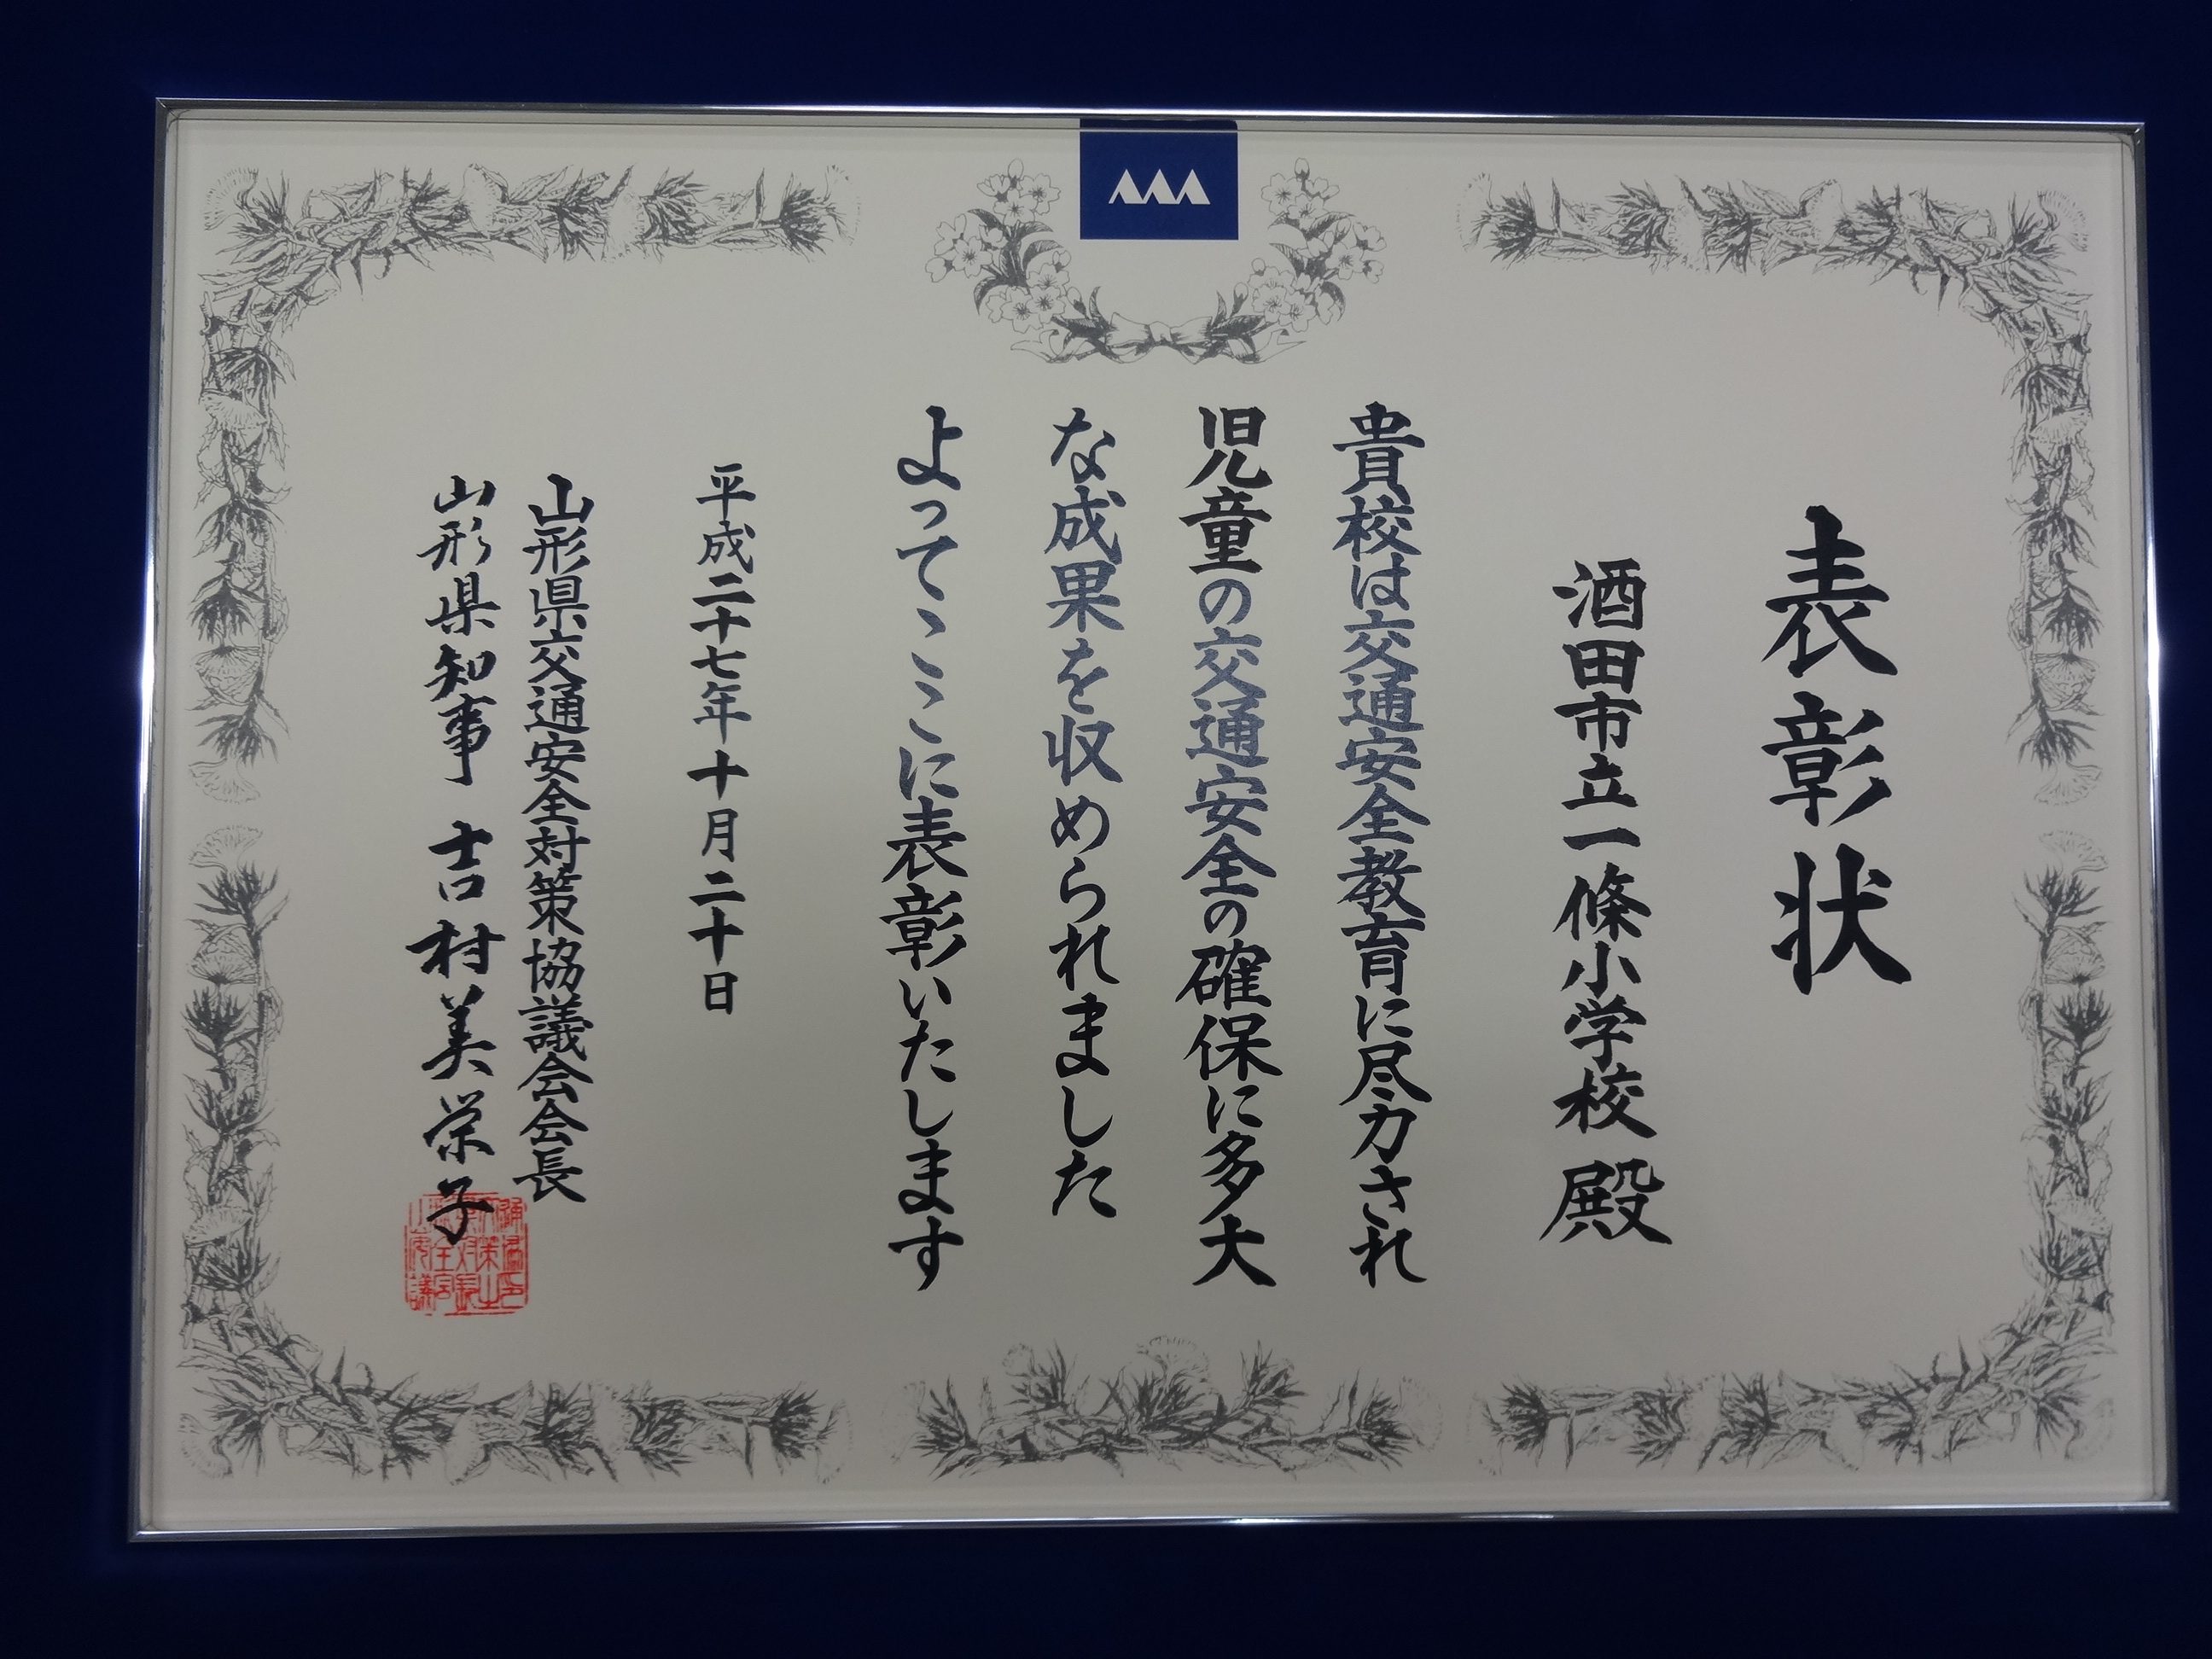 表彰状
酒田市立一條小学校 殿
貴校は交通安全教育に尽力され
児童の交通安全の確保に多大
な成果を収められました
よってここに表彰いたします
平成二十七年十月二十日
山形県交通安全対策協議会会長
山形県知事 吉村美栄子